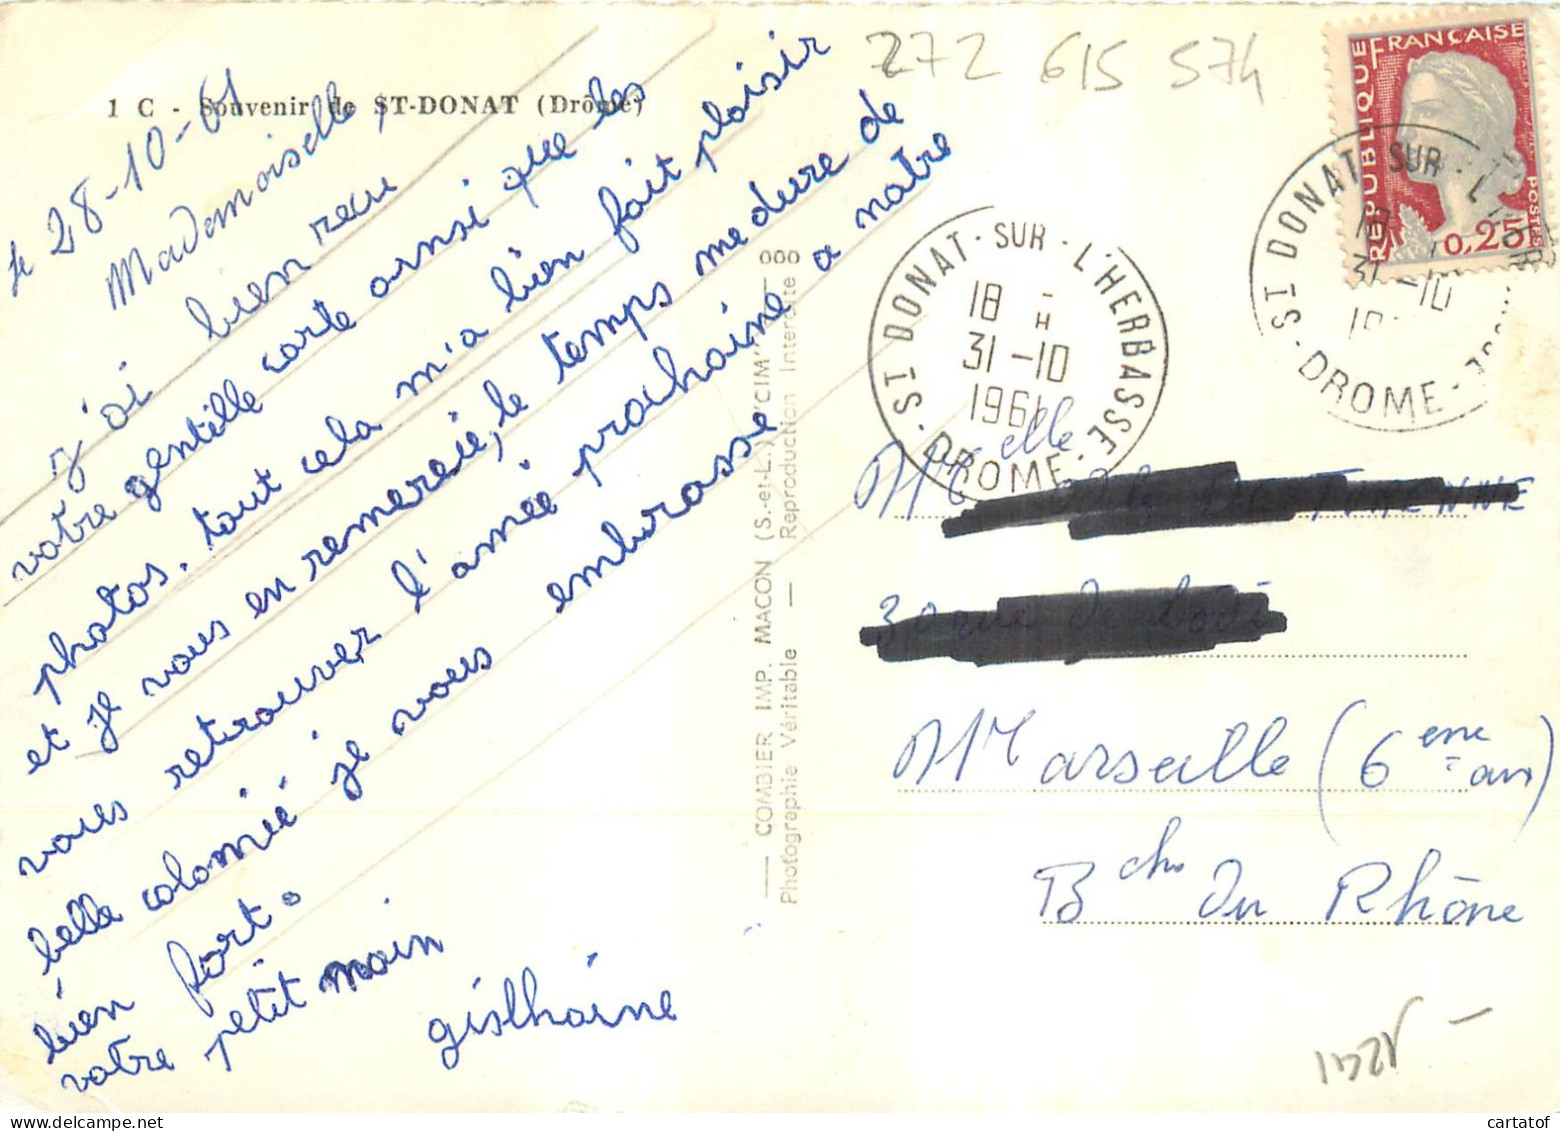 1 C - Souvenir de ST-DONAT (Drôme)
le 28-10-61
Mademoiselle,
j'ai bien reçu
votre gentille carte ainsi que les
photos. tout cela m'a bien fait plaisir
et je vous en remercie, le temps me dure de
vous retrouver l'année prochaine a notre
belle colonie je vous embrasse
bien fort.
votre petit
gislhaine
COMBIER IMP. MACON (S.-et-L.) "CIM"
Photographie Véritable — Reproduction Interdite
272 615 574
REPUBLIQUE FRANÇAISE
0,25
POSTES
ST DONAT-SUR-L'HERBASSE
18 H
31-10
1961
DROME
ST DONAT-SUR-L'
31-10
DROME
Melle
Marseille (6eme
arr)
Bches Du Rhône